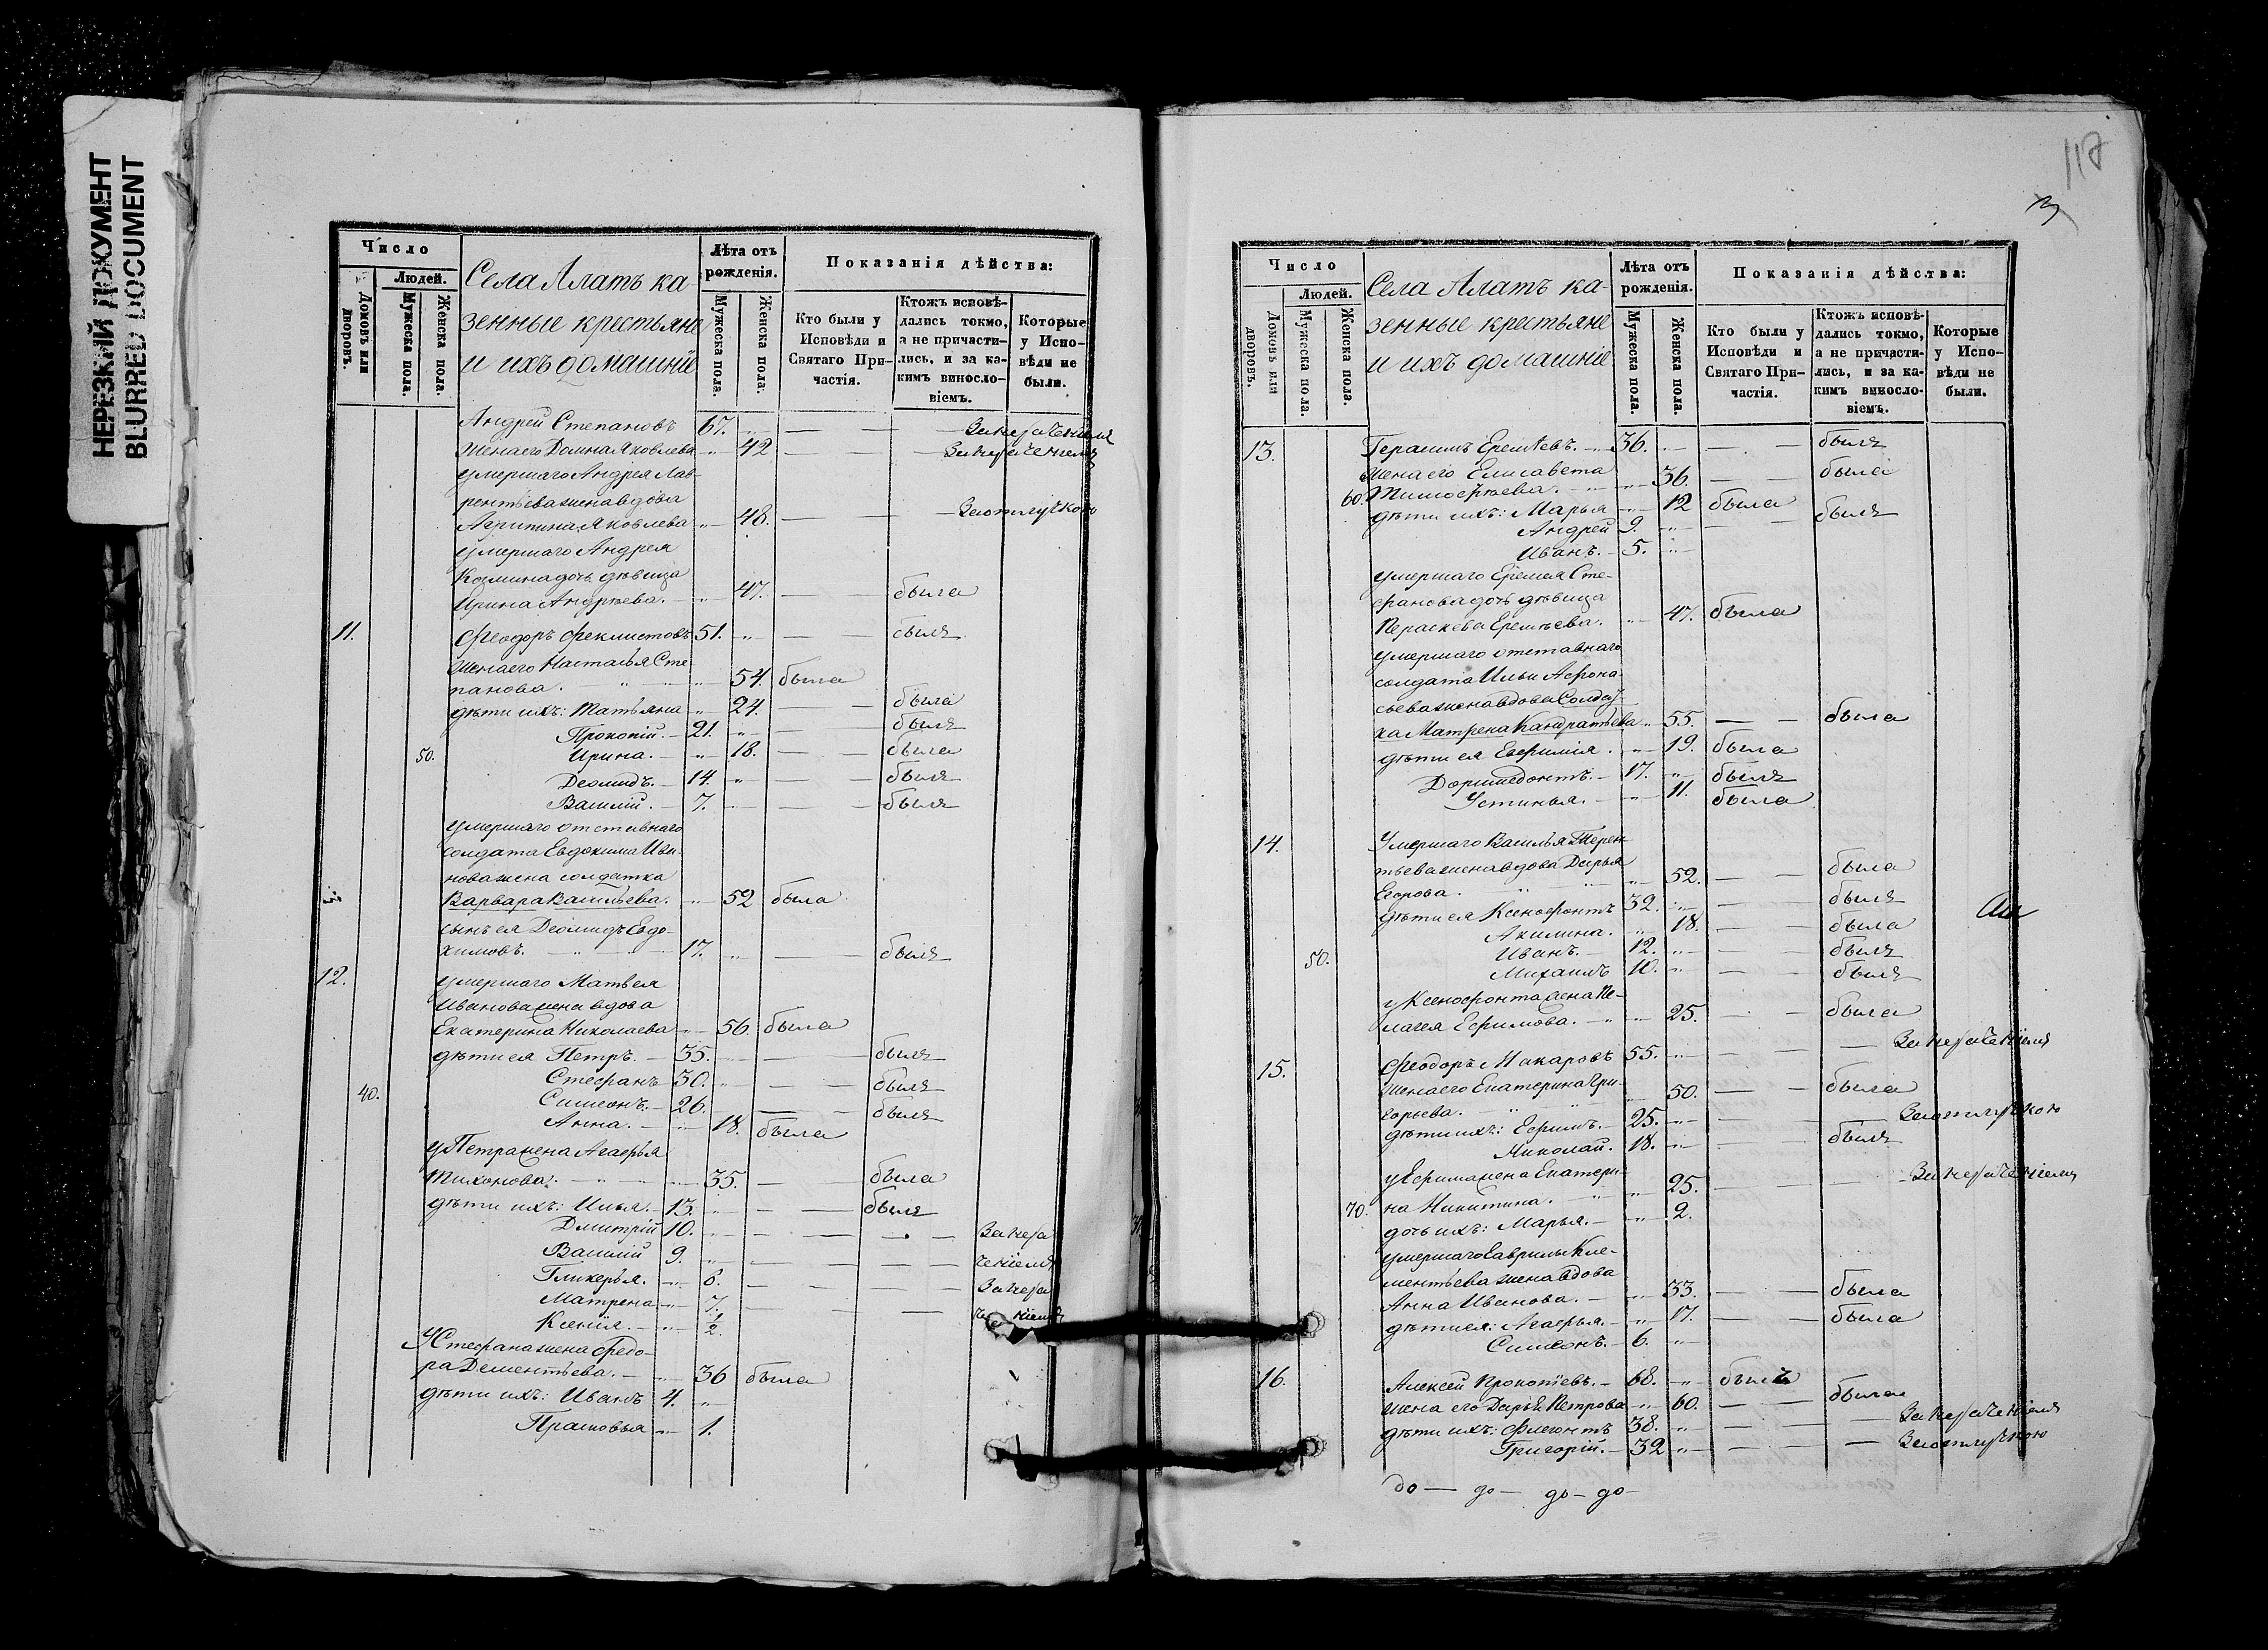 НЕРЕЗКИЙ ДОКУМЕНТ
BLURRED DOCUMENT
Число
Людей.
Домовъ или дворовъ.
Мужеска пола.
Женска пола.
Села Алатъ ка-
зенные крестьяне
и ихъ домашніе
Лѣта отъ рожденія.
Мужеска пола.
Женска пола.
Показанія дѣйства:
Кто были у Исповѣди и Святаго Причастія.
Ктожъ исповѣ-
дались токмо,
а не причасти-
лись, и за ка-
кимъ винословіемъ.
Которые у Исповѣди не были.
Андрей Степановъ 67. " — — — За нераченіемъ
Жена его Домна Яковлева " 42 — — — За нераченіемъ
умершаго Андрея Лав-
рентьева жена вдова
Агрипина Яковлева " 48. — — — За отлучкою
умершаго Андрея
Козмина дочь дѣвица
Ирина Андрѣева. — " — 47. — — была
11. Феодоръ Феклистовъ 51. " — — былъ
Жена его Настасья Сте-
панова. — " — 54. была
дѣти ихъ: Татьяна " 24. — — была
Прокопій. — 21. " — — былъ
50. Ирина. — " 18. — — была
Деомидъ. — 14. " — — былъ
Василій. — 7. — — былъ
умершаго отставнаго
солдата Евдокима Ива-
нова жена солдатка
3 Варвара Васильева. — " — 52 была
сынъ ея Деомидъ Евдо-
кимовъ. — " — 17. " — — былъ
12. умершаго Матвея
Иванова жена вдова
Екатерина Николаева " — 56. была
дѣти ея Петръ. — 35. — — былъ
Стефанъ 30. " — — былъ
40. Симеонъ. — 26. — — былъ
Анна. — " — 18. была
у Петра жена Агафья
Тихонова. — " — 35. — была
дѣти ихъ: Илья. — 13. " — — былъ
Дмитрій 10. " — — — За нера
Василій 9. " — — — ченіемъ
Гликерья. — " 8. — — — За нера
Матрена — " 7. — — ченіемъ
Ксенія. — " — 1/2.
У Стефана жена Федо-
ра Дементьева. — " — 36 была
дѣти ихъ: Иванъ 4. "
Прасковья — " — 1.
117
Число
Людей.
Домовъ или дворовъ.
Мужеска пола.
Женска пола.
Села Алатъ ка-
зенные крестьяне
и ихъ домашніе
Лѣта отъ рожденія.
Мужеска пола.
Женска пола.
Показанія дѣйства:
Кто были у Исповѣди и Святаго Причастія.
Ктожъ исповѣ-
дались токмо,
а не причасти-
лись, и за ка-
кимъ винословіемъ.
Которые у Исповѣди не были.
13. Герасимъ Еремѣевъ. — 36. " — — былъ
Жена его Елисавета
60. Тимофѣева. — " — 36. — — была
дѣти ихъ: Марья " 12 была
Андрей 9. " — — былъ
Иванъ. — 5. "
умершаго Еремея Сте-
фанова дочь дѣвица
Параскева Еремѣева. " — 47. была
умершаго отставнаго
солдата Ильи Афона-
сьева жена вдова Солдат-
ка Матрена Кандратьева " 55. — — была
дѣти ея Евфимія. " — 19. была
Доримедонтъ. — 17. " былъ
Устинья. — " — 11. была
14. Умершаго Василья Терен-
тьева жена вдова Дарья
Егорова. " — 52. — — была
дѣти ея Ксенофонтъ 32. " — — былъ
Акилина. " 18. — — была
50. Иванъ. — 12. " — — былъ
Михаилъ 10. " — — былъ
у Ксенофонта жена Пе-
лагея Ефимова. — " — 25. — — была
15. Феодоръ Макаровъ 55. " — — — За нераченіемъ
Жена его Екатерина Гри-
горьева. — " — 50. — — была
дѣти ихъ: Ефимъ. — 25. " — — — За отлучкою
Николай. — 18. " — — былъ
у Ефима жена Екатери-
на Никитина. " — 25. — — — За нераченіемъ
70. дочь ихъ: Марья. — " — 2.
умершаго Гаврилы Кле-
ментьева жена вдова
Анна Иванова. — " — 33. — — была
дѣти ея: Агафья. — " — 17. — — была
Симеонъ. — 6. "
16. Алексей Прокопіевъ. — 68. " былъ
жена его Дарья Петрова " 60. — — была
дѣти ихъ: Флегонтъ 38. " — — — За нераченіемъ
Григорій. — 32 " — — — За отлучкою
до — до — до — до —